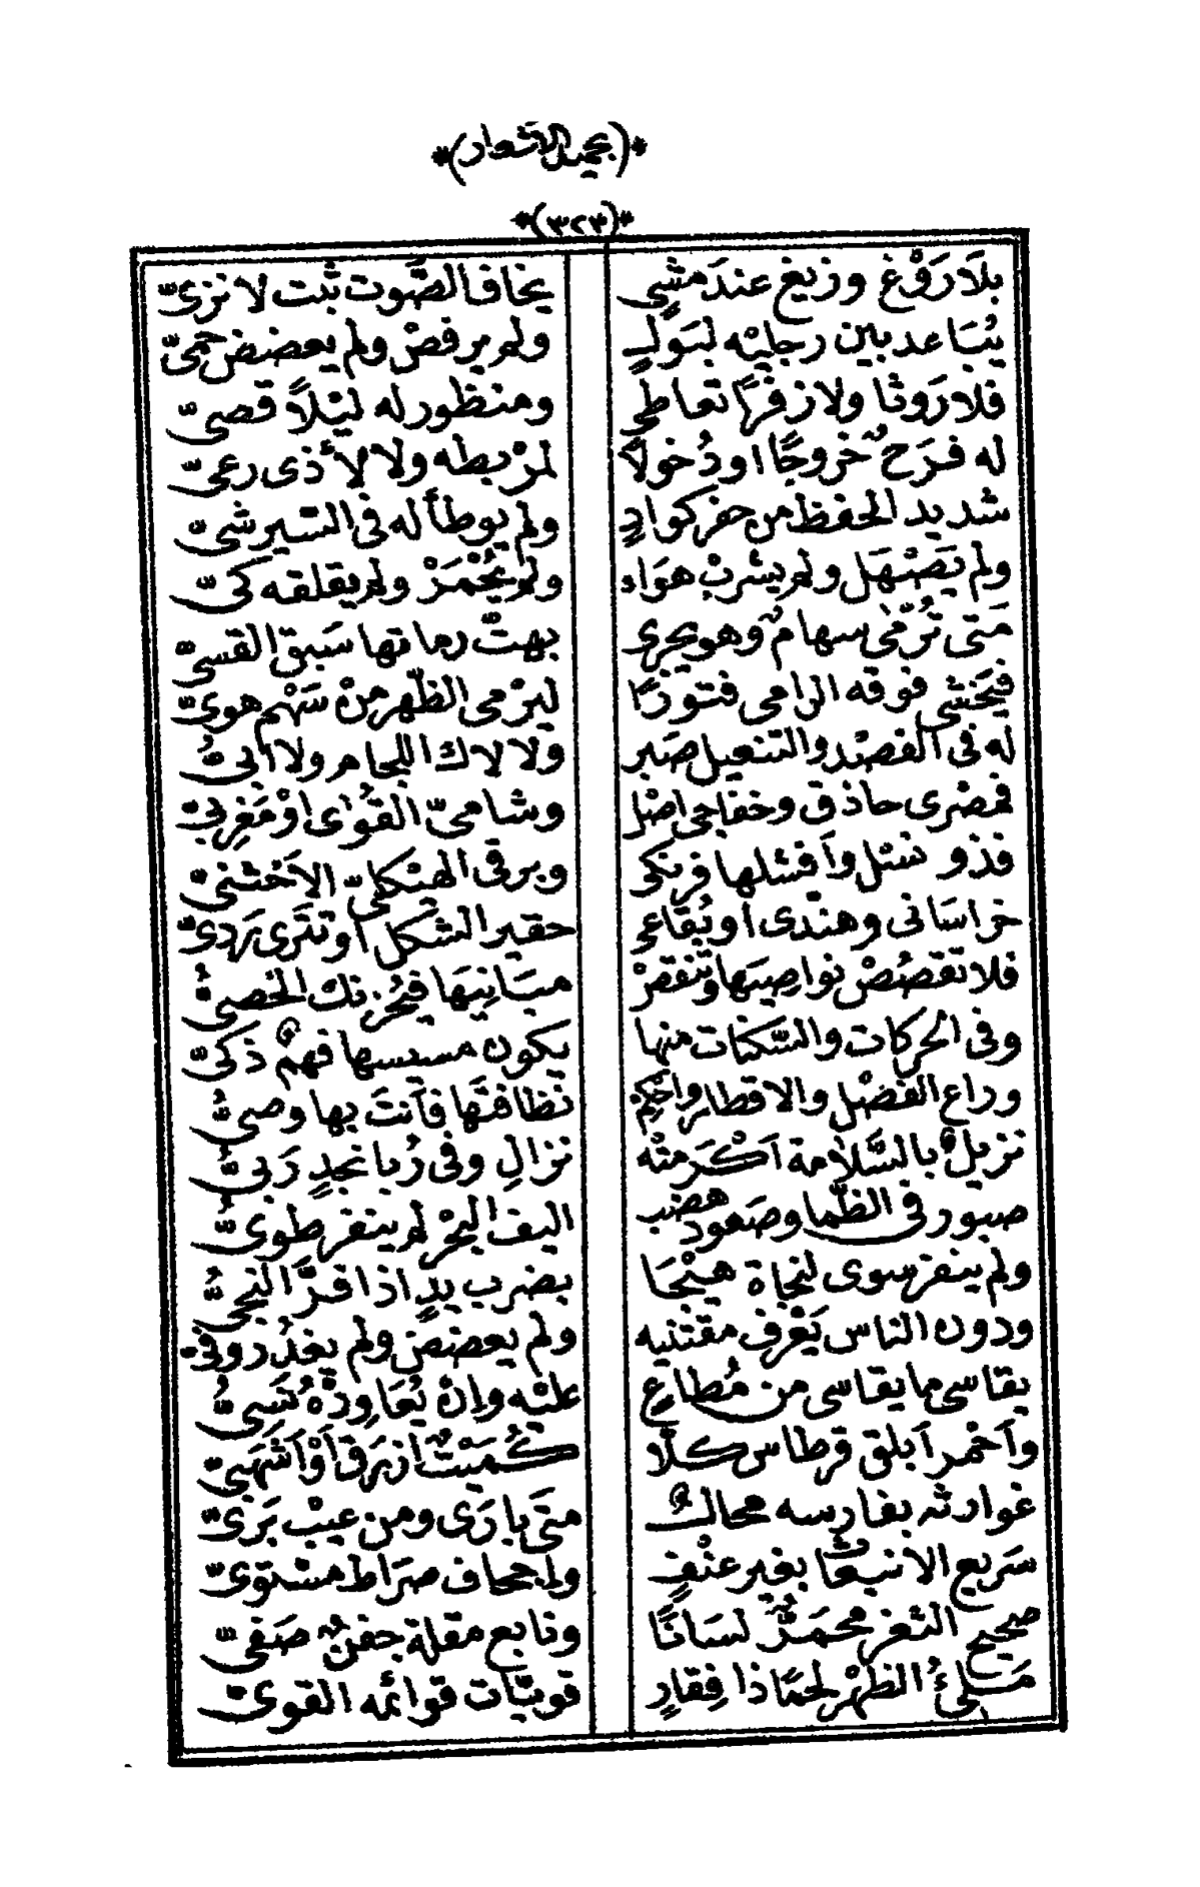 *(بجميل الاشعار)*
*(٣٢٤)*
بلَا رَوْغ وزيغ عندَ مشي يخاف الصَّوت ثبت لا نزىّ
يُبَاعد بين رجليْه لبَولٍ ولم يرفصْ ولم يعضض حمىّ
فلا رَوثا ولا زفرًا تعاطى ومنظور له ليْلاً قصىّ
له فرَح خروجًا او دُخولاً لمرْبطه ولا لأذى رعىّ
شديد الحفظ من حفر كوادٍ ولم يوطأ له فى السّير شىّ
ولم يَصْهَل ولم يشربْ هوَاء ولم يُحْمَرْ ولم يقلقه كىّ
مَتى تُرْمٰى سهام وهو يجرى بهتْ رماتها سَبق القسىّ
فيَخشى فوقه الرامى فتوزًا ليرْمى الظّهر منْ سَهْم هوىّ
له فى الفصْد والتنعيل صَبر ولا لاك اللجام ولا ابىُّ
فمصْرى حاذق وخفاجى اصْل وشامىّ القُوٰى اوْ مَغربىّ
فذو نسْل وأفشلها فرنكى وبرقى الهيْكلىّ الاخشنىّ
خراسَانى وهنْدى او بُقاعى حقير الشكل او تترى رَدىّ
فلا تقصُصْ نواصيَها وتنقصْ مبَانيَها فيُحزنك الخصىُّ
وفى الحركات والسّكنات منها يكون مسيسها فهمٌ ذكىّ
وراع الفضْل والاقطار واحْكم نظافتَها فأنتَ بها وصىُّ
نزيلٌ بالسَّلَامة اكْرَمتْه نزالِ وفى رُبا نجدٍ رَبىُّ
صبور فى الظّما وصَعود هضب اليف البحْر لم ينفر طوىُّ
ولم ينفر سوى لنجاة هيْجَا بضرب يدٍ اذا فرَّ النجىُّ
ودون الناس يَعْرف مقتنيه ولم يعضض ولم يغدُر وفىّ
يقاسى ما يقاسى من مُطاع عليْه وانْ يُعَاودْهُ نُسَىُّ
وأحْمر أبلق قرطاس كلّا كُمَيْتٌ ازرق أوْ أشهَبىّ
غوارته بفارسه محالٌ متَى بارَى ومن عيبْ بَرَىّ
سَريع الانبعَاث بغير عنْفٍ ولا جحاف صرَاط مسْتوىّ
صحيح الثغر محمَرٌّ لسَانًا ونابع مقلة جفنٌ صَفىّ
مَلىءُ الظهْر لحمًا ذا فِقارٍ قويّات قوائمه القوىّ